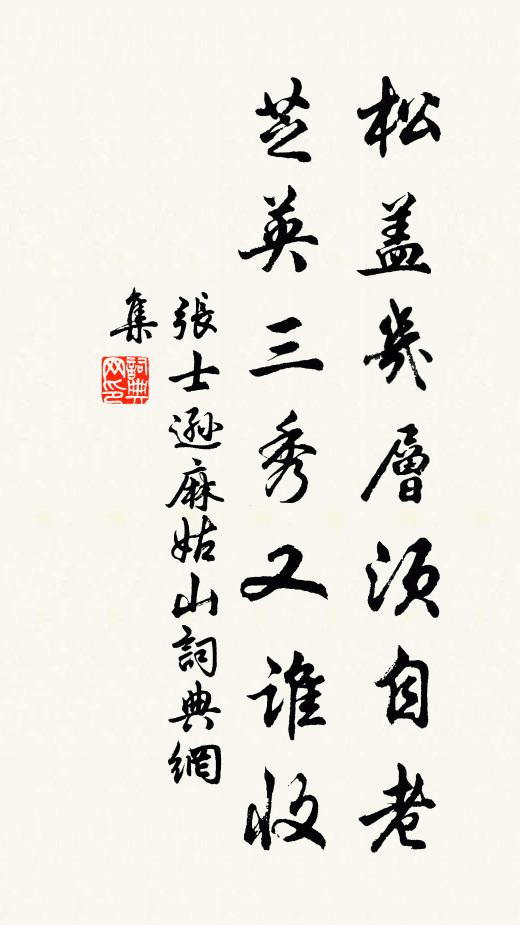 松蓋幾層須自老
芝英三秀又誰收
張士遜麻姑山詞典網
集
詞典
网印